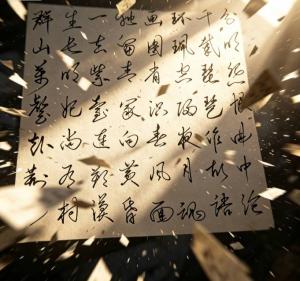 群山萬壑赴荆
生长明妃尚有村
一去紫臺連朔漠
独留青冢向黄昏
画圖省识春风面
环珮空歸夜月魂
千載琵琶作胡語
分明怨恨曲中论